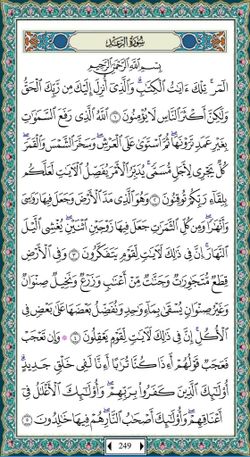 سُورَةُ الرَّعْدِ
بِسْمِ اللَّهِ الرَّحْمَٰنِ الرَّحِيمِ
الٓمٓر ۚ تِلْكَ ءَايَٰتُ ٱلْكِتَٰبِ ۗ وَٱلَّذِىٓ أُنزِلَ إِلَيْكَ مِن رَّبِّكَ ٱلْحَقُّ
وَلَٰكِنَّ أَكْثَرَ ٱلنَّاسِ لَا يُؤْمِنُونَ ۝١ ٱللَّهُ ٱلَّذِى رَفَعَ ٱلسَّمَٰوَٰتِ
بِغَيْرِ عَمَدٍ تَرَوْنَهَا ۖ ثُمَّ ٱسْتَوَىٰ عَلَى ٱلْعَرْشِ ۖ وَسَخَّرَ ٱلشَّمْسَ وَٱلْقَمَرَ ۖ
كُلٌّ يَجْرِى لِأَجَلٍ مُّسَمًّى ۚ يُدَبِّرُ ٱلْأَمْرَ يُفَصِّلُ ٱلْءَايَٰتِ لَعَلَّكُم
بِلِقَآءِ رَبِّكُمْ تُوقِنُونَ ۝٢ وَهُوَ ٱلَّذِى مَدَّ ٱلْأَرْضَ وَجَعَلَ فِيهَا رَوَٰسِىَ
وَأَنْهَٰرًا ۖ وَمِن كُلِّ ٱلثَّمَرَٰتِ جَعَلَ فِيهَا زَوْجَيْنِ ٱثْنَيْنِ ۖ يُغْشِى ٱلَّيْلَ
ٱلنَّهَارَ ۚ إِنَّ فِى ذَٰلِكَ لَءَايَٰتٍ لِّقَوْمٍ يَتَفَكَّرُونَ ۝٣ وَفِى ٱلْأَرْضِ
قِطَعٌ مُّتَجَٰوِرَٰتٌ وَجَنَّٰتٌ مِّنْ أَعْنَٰبٍ وَزَرْعٌ وَنَخِيلٌ صِنْوَانٌ
وَغَيْرُ صِنْوَانٍ يُسْقَىٰ بِمَآءٍ وَٰحِدٍ وَنُفَضِّلُ بَعْضَهَا عَلَىٰ بَعْضٍ فِى
ٱلْأُكُلِ ۚ إِنَّ فِى ذَٰلِكَ لَءَايَٰتٍ لِّقَوْمٍ يَعْقِلُونَ ۝٤ وَإِن تَعْجَبْ
فَعَجَبٌ قَوْلُهُمْ أَءِذَا كُنَّا تُرَٰبًا أَءِنَّا لَفِى خَلْقٍ جَدِيدٍ ۗ
أُو۟لَٰٓئِكَ ٱلَّذِينَ كَفَرُوا۟ بِرَبِّهِمْ ۖ وَأُو۟لَٰٓئِكَ ٱلْأَغْلَٰلُ فِىٓ
أَعْنَاقِهِمْ ۖ وَأُو۟لَٰٓئِكَ أَصْحَٰبُ ٱلنَّارِ ۖ هُمْ فِيهَا خَٰلِدُونَ ۝٥
249